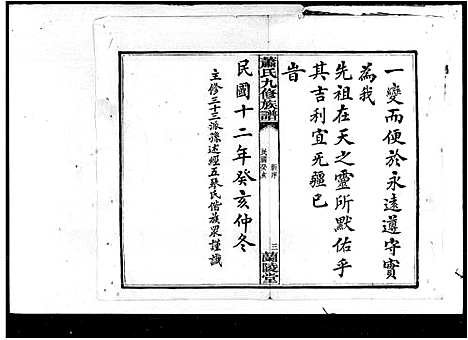 一變而便於永遠遵守實
為我
先祖在天之靈所默佑乎
其吉利宜无疆已
旹
蕭氏九修族譜
新序
民國癸亥
三
蘭陵堂
民國十二年癸亥仲冬
主修三十三派孫述經五琴氏偕族眾謹識